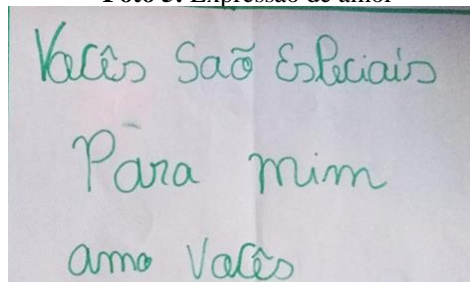 Foto 3: Expressão de amor
Vocês Saõ Especiais
Para mim
amo Vocês